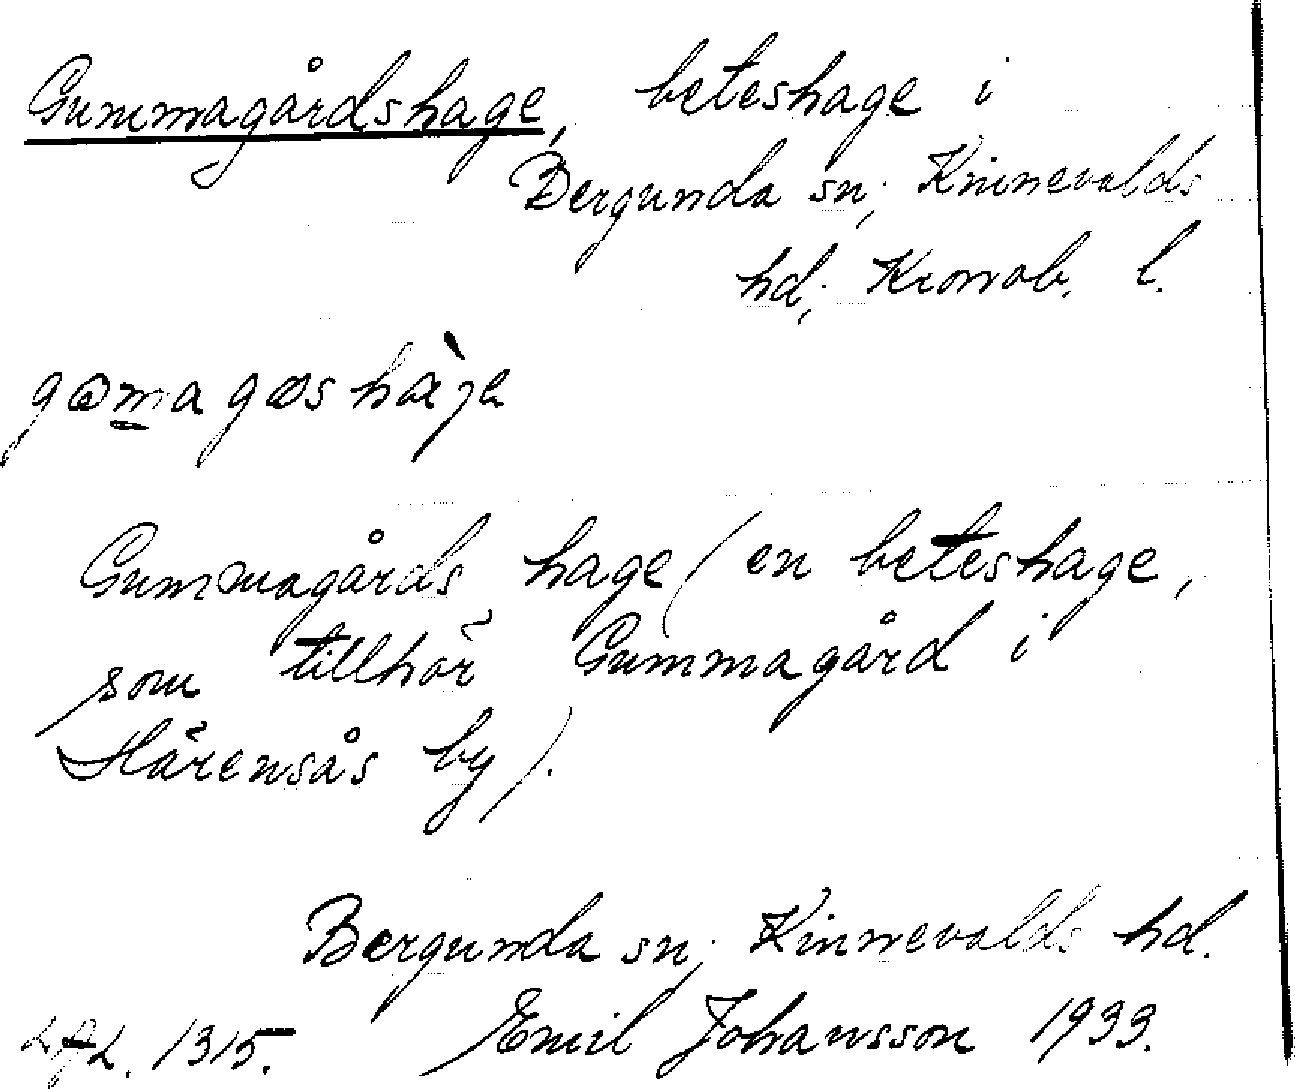 Gummagårdshage, beteshage i
Bergunda sn; Kinnevalds
hd; Kronob. l.
Gummagårds hage (en beteshage,
som tillhör Gummagård i
Härensås by).
Bergunda sn; Kinnevalds hd.
LAL. 1315. Emil Johansson 1933.